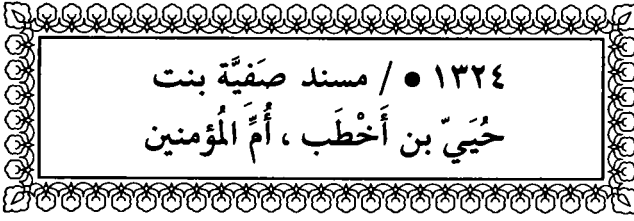 ١٣٢٤ ● / مسند صَفيَّة بنت
حُيَيّ بن أَخْطَب ، أُمِّ المُؤمنين